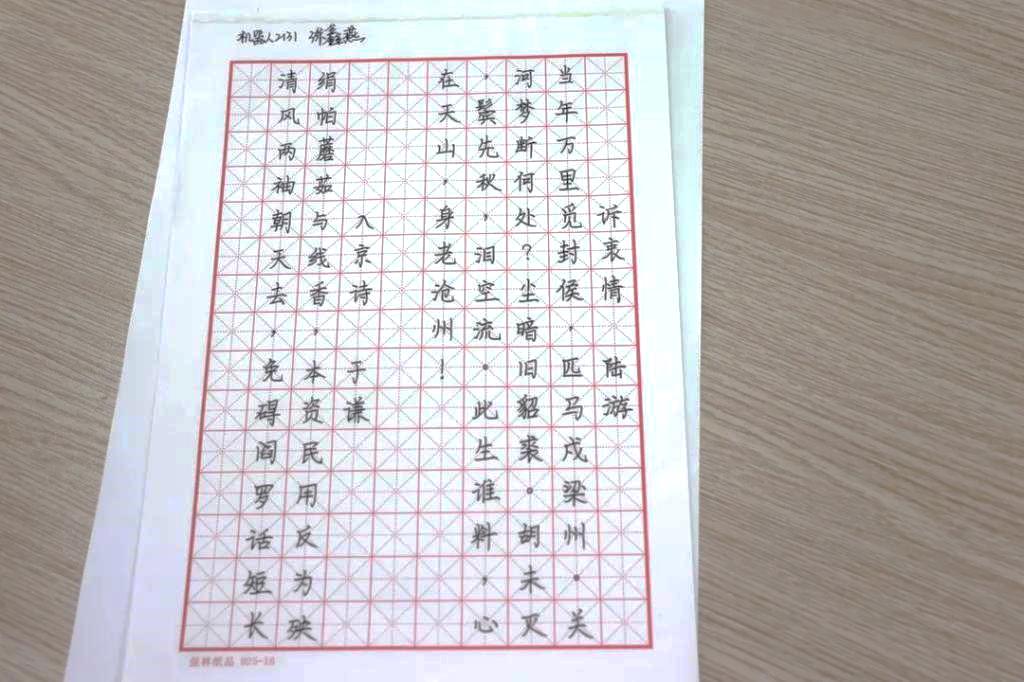 机器人2131
诉衷情 陆游
当年万里觅封侯，匹马戍梁州。关
河梦断何处？尘暗旧貂裘。胡未灭
，鬓先秋，泪空流。此生谁料，心
在天山，身老沧州！
入京诗 于谦
绢帕蘑茹与线香，本资民用反为殃
清风两袖朝天去，免碍阎罗话短长